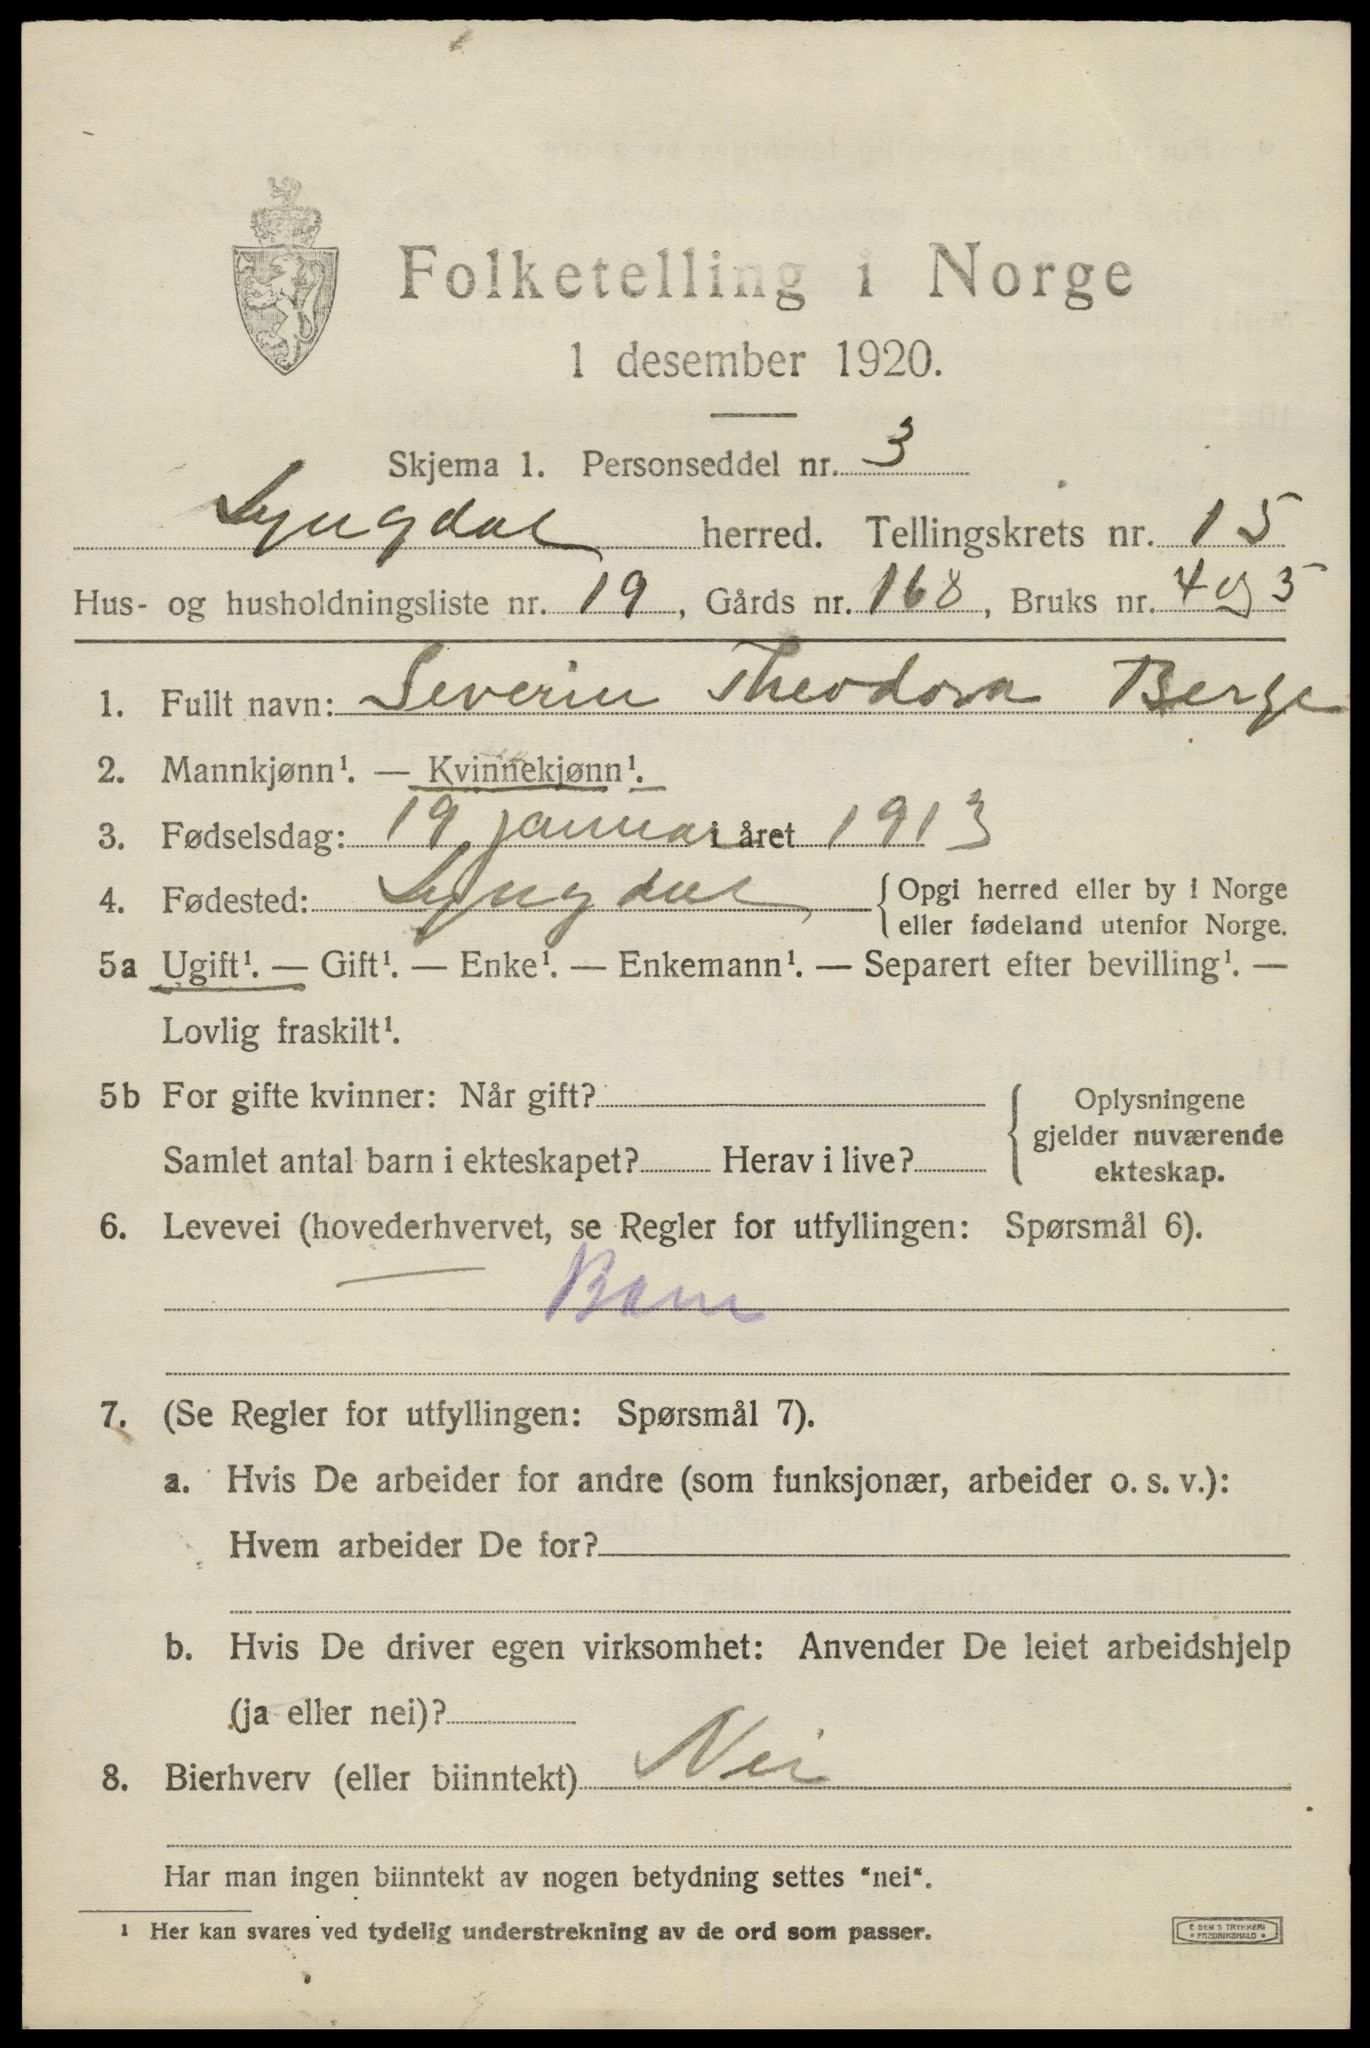 Folketelling i Norge
1 desember 1920.
Skjema 1. Personseddel nr. 3
Lyngdal herred. Tellingskrets nr. 15
Hus- og husholdningsliste nr. 19, Gårds nr. 168, Bruks nr. 4 og 5
1. Fullt navn: Severin Theodora Berge
2. Mannkjønn¹. — Kvinnekjønn¹.
3. Fødselsdag: 19 januar i året 1913
4. Fødested: Lyngdal { Opgi herred eller by i Norge
eller fødeland utenfor Norge.
5a Ugift¹. — Gift¹. — Enke¹. — Enkemann¹. — Separert efter bevilling¹. —
Lovlig fraskilt¹.
5b For gifte kvinner: Når gift?
Samlet antal barn i ekteskapet? Herav i live?
{ Oplysningene
gjelder nuværende
ekteskap.
6. Levevei (hovederhvervet, se Regler for utfyllingen: Spørsmål 6).
— Barn
7. (Se Regler for utfyllingen: Spørsmål 7).
a. Hvis De arbeider for andre (som funksjonær, arbeider o. s. v.):
Hvem arbeider De for?
b. Hvis De driver egen virksomhet: Anvender De leiet arbeidshjelp
(ja eller nei)?
8. Bierhverv (eller biinntekt) Nei
Har man ingen biinntekt av nogen betydning settes "nei".
¹ Her kan svares ved tydelig understrekning av de ord som passer.
E SEM'S TRYKKERI
• FREDRIKSHALD •